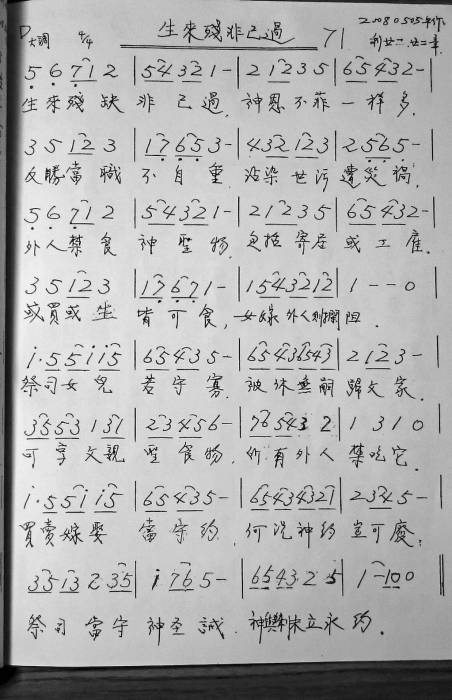 生來殘非己過 71 20080505年作
D大調 4/4 利廿一,廿二章
5 6 7 1 2 | 5 4 3 2 1 - | 2 1 2 3 5 | 6 5 4 3 2 - |
生來殘缺 非己過, 神恩不菲一样多.
3 5 1 2 3 | 1 7 6 5 3 - | 4 3 2 1 2 3 | 2 5 6 5 - |
反勝當職 不自重, 沾染世污遭災禍.
5 6 7 1 2 | 5 4 3 2 1 - | 2 1 2 3 5 | 6 5 4 3 2 - |
外人禁食 神聖物, 包括寄居或工雇.
3 5 1 2 3 | 1 7 6 7 1 - | 1 5 4 3 2 1 2 | 1 - - 0 |
或買或生 皆可食, 女嫁外人則攔阻.
i · 5 5 i i 5 | 6 5 4 3 5 - | 6 5 4 3 6 5 4 3 | 2 1 2 3 - |
祭司女兒 若守寡, 被休無嗣歸父家.
3 5 5 3 1 3 1 | 2 3 4 5 6 - | 7 6 5 4 3 2 | 1 3 1 0 |
可享父親 聖食物, 所有外人禁吃它.
i · 5 5 i i 5 | 6 5 4 3 5 - | 6 5 4 3 4 3 2 1 | 2 3 4 5 - |
買賣嫁娶 當守約, 何況神約豈可廢.
3 5 1 3 2 3 5 | i 7 6 5 - | 6 5 4 3 2 5 | 1 - 1 0 0 ‖
祭司當守神圣誡. 神與立永約.